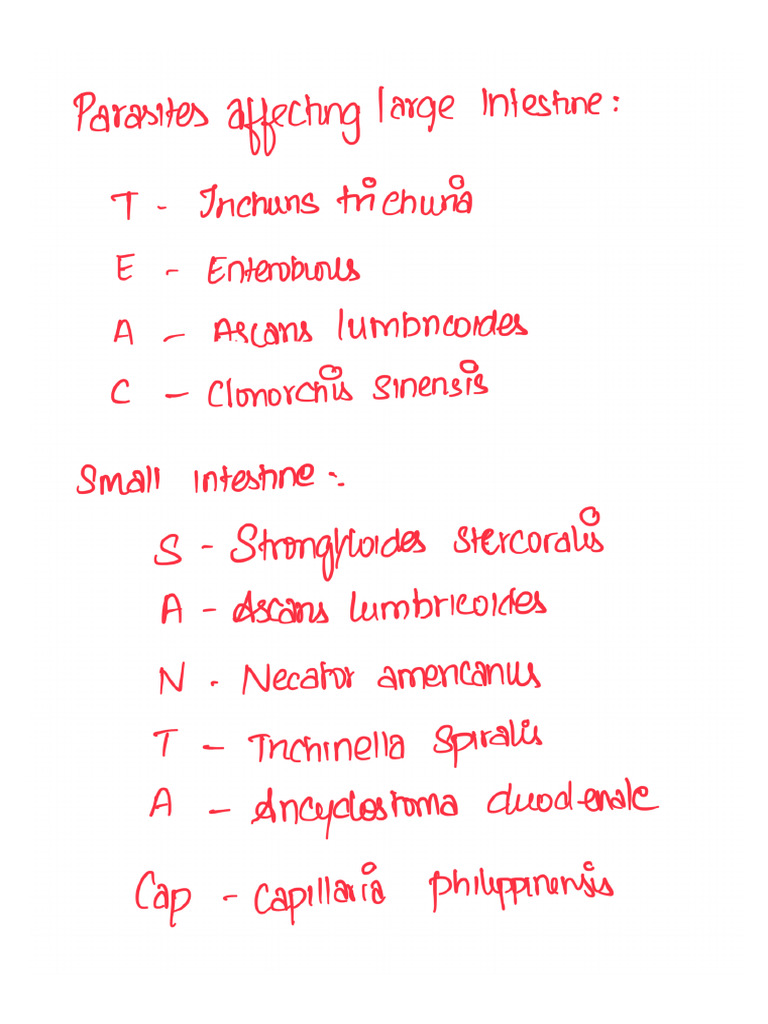 Parasites affecting large intestine:
T - Trichuris trichuria
E - Enterobius
A - Ascaris lumbricoides
C - Clonorchis sinensis
Small intestine :-
S - Strongyloides stercoralis
A - Ascaris lumbricoides
N - Necator americanus
T - Trichinella spiralis
A - Ancyclostoma duodenale
Cap - Capillaria philippinensis